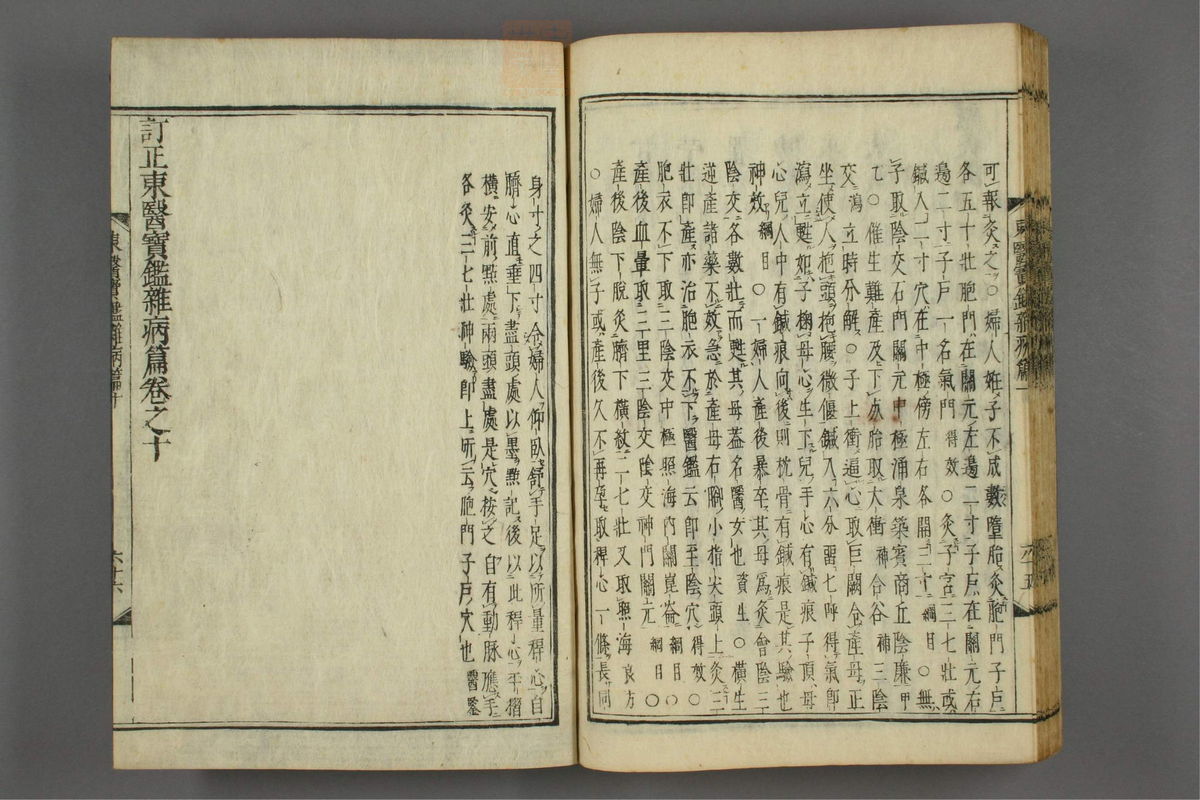 可報灸之○婦人姙子不成數墮胎灸胞門子戶
各五十壯胞門在關元左邊二寸子戶在關元右
邊二寸子戶一名氣門得效○灸子宮三七壯或
鍼入二寸穴在中極傍左右各開三寸綱目○無
子取陰交石門關元中極涌泉築賓商丘陰廉甲
乙○催生難產及下死胎取太衝神合谷神三陰
交瀉立時分解○子上衝逼心取巨闕令產母正
坐使人抱頭抱腰微偃鍼入六分留七呼得氣即
瀉立甦如子掬母心生下兒手心有鍼痕子頂母
心兒人中有鍼痕向後則枕骨有鍼痕是其驗也
神效綱目○一婦人產後暴卒其母爲灸會陰三
陰交各數壯而甦其母蓋名醫女也資生○橫生
逆產諸藥不效急於產母右脚小指尖頭上灸三
壯即產亦治胞衣不下醫鑑云即至陰穴得效○
胞衣不下取三陰交中極照海內關崑崙綱目○
產後血暈取三里三陰交陰交神門關元綱目○
產後陰下脫灸臍下橫紋二七壯又取照海良方
○婦人無子或產後久不再孕取稈心一條長同
東醫寶鑑雜病篇十
六十五
身寸之四寸令婦人仰臥舒手足以所量稈心自
臍心直垂下盡頭處以墨點記後以此稈心平摺
橫安前點處兩頭盡處是穴按之自有動脉應手
各灸三七壯神驗即上所云胞門子戶穴也醫鑒
訂正東醫寶鑑雜病篇卷之十
東醫寶鑑雜病篇十
六十六